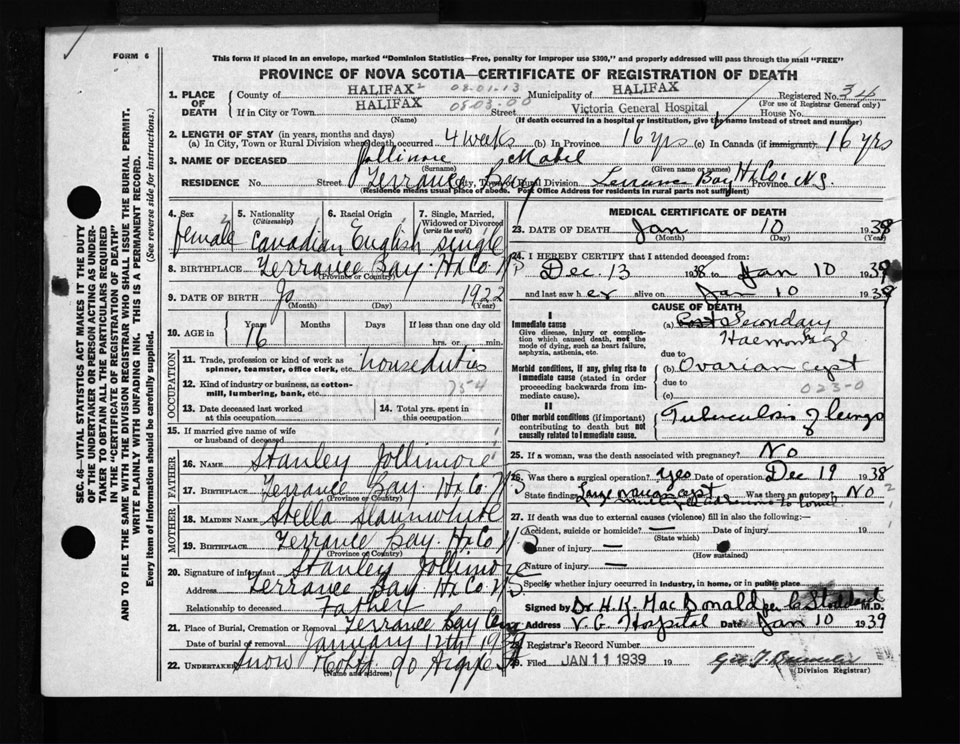 FORM 6
This form if placed in an envelope, marked "Dominion Statistics—Free, penalty for improper use $300," and properly addressed will pass through the mail "FREE"
PROVINCE OF NOVA SCOTIA—CERTIFICATE OF REGISTRATION OF DEATH
1. PLACE OF DEATH
County of HALIFAX 2 08-01-13 Municipality of HALIFAX Registered No. 34
(For use of Registrar General only)
If in City or Town HALIFAX 08-03-00 Street Victoria General Hospital House No.
(Name) (If death occurred in a hospital or institution, give the name instead of street and number)
2. LENGTH OF STAY (in years, months and days)
(a) In City, Town or Rural Division where death occurred 4 weeks (b) In Province 16 yrs (c) In Canada (if immigrant) 16 yrs
3. NAME OF DECEASED Jollimore Mabel
(Surname) (Given name or names)
RESIDENCE No. Street Terrance Bay City, Town or Rural Division Terrance Bay Hx Co. Province N.S.
(Residence means usual place of abode. Post Office Address for residents in rural parts not sufficient)
4. Sex female
5. Nationality (Citizenship) Canadian
6. Racial Origin English
7. Single, Married, Widowed or Divorced (write the word) single
8. BIRTHPLACE Terrance Bay. Hx Co. N S
(Province or Country)
9. DATE OF BIRTH 1922
(Month) (Day) (Year)
10. AGE in Years Months Days If less than one day old
16 hrs. or min.
OCCUPATION
11. Trade, profession or kind of work as spinner, teamster, office clerk, etc. house duties
12. Kind of industry or business, as cotton-mill, lumbering, bank, etc.
13. Date deceased last worked at this occupation
14. Total yrs. spent in this occupation
15. If married give name of wife or husband of deceased
FATHER
16. NAME Stanley Jollimore
17. BIRTHPLACE Terrance Bay. Hx Co. N S
(Province or Country)
MOTHER
18. MAIDEN NAME Stella Slaunwhite
19. BIRTHPLACE Terrance Bay. Hx Co. N S
(Province or Country)
20. Signature of informant Stanley Jollimore
Address Terrance Bay Hx Co. N S
Relationship to deceased Father
21. Place of Burial, Cremation or Removal Terrance Bay
Date of burial or removal January 12th 1939
22. UNDERTAKER Snow & Co Ltd. 90 Argyle St
(Name and address)
MEDICAL CERTIFICATE OF DEATH
23. DATE OF DEATH Jan 10 1938
(Month) (Day) (Year)
24. I HEREBY CERTIFY that I attended deceased from:
Dec. 13 1938 to Jan 10 1939
and last saw her alive on Jan 10 1939
CAUSE OF DEATH
I
Immediate cause
Give disease, injury or complication which caused death, not the mode of dying, such as heart failure, asphyxia, asthenia, etc.
(a) Secondary
Haemorrhage
due to
Morbid conditions, if any, giving rise to immediate cause (stated in order proceeding backwards from immediate cause).
(b) Ovarian cyst
due to 023-0
(c)
II
Other morbid conditions (if important) contributing to death but not causally related to immediate cause.
Tuberculosis of lungs
25. If a woman, was the death associated with pregnancy? No
26. Was there a surgical operation? Yes Date of operation Dec 19 1938
State findings Large ovarian cyst Was there an autopsy? No
27. If death was due to external causes (violence) fill in also the following:—
Accident, suicide or homicide? — Date of injury 19
(State which)
Manner of injury —
(How sustained)
Nature of injury —
Specify whether injury occurred in industry, in home, or in public place
Signed by Dr H. K. MacDonald per C Stoddard M.D.
Address V. G. Hospital Date Jan 10 1939
28. Registrar's Record Number
29. Filed JAN 11 1939 19
(Division Registrar)
SEC. 46—VITAL STATISTICS ACT MAKES IT THE DUTY OF THE UNDERTAKER OR PERSON ACTING AS UNDERTAKER TO OBTAIN ALL THE PARTICULARS REQUIRED IN THE "CERTIFICATE OF REGISTRATION OF DEATH" AND TO FILE THE SAME WITH THE DIVISION REGISTRAR WHO SHALL ISSUE THE BURIAL PERMIT.
WRITE PLAINLY WITH UNFADING INK. THIS IS A PERMANENT RECORD.
Every item of information should be carefully supplied. (See reverse side for instructions.)